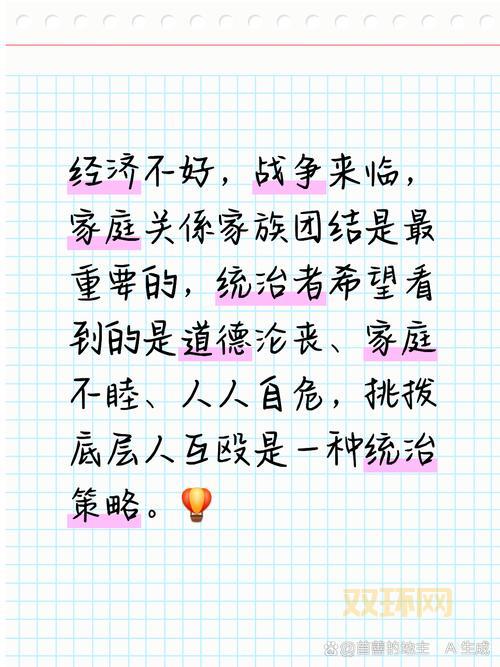 经济不好，战争来临，
家庭关係家族团结是最
重要的，统治者希望看
到的是道德沦丧、家庭
不睦、人人自危，挑拨
底层人互殴是一种统治
策略。
双环网
A 生成